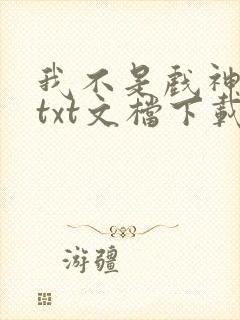 我不是戏神
txt文檔下載
游疆